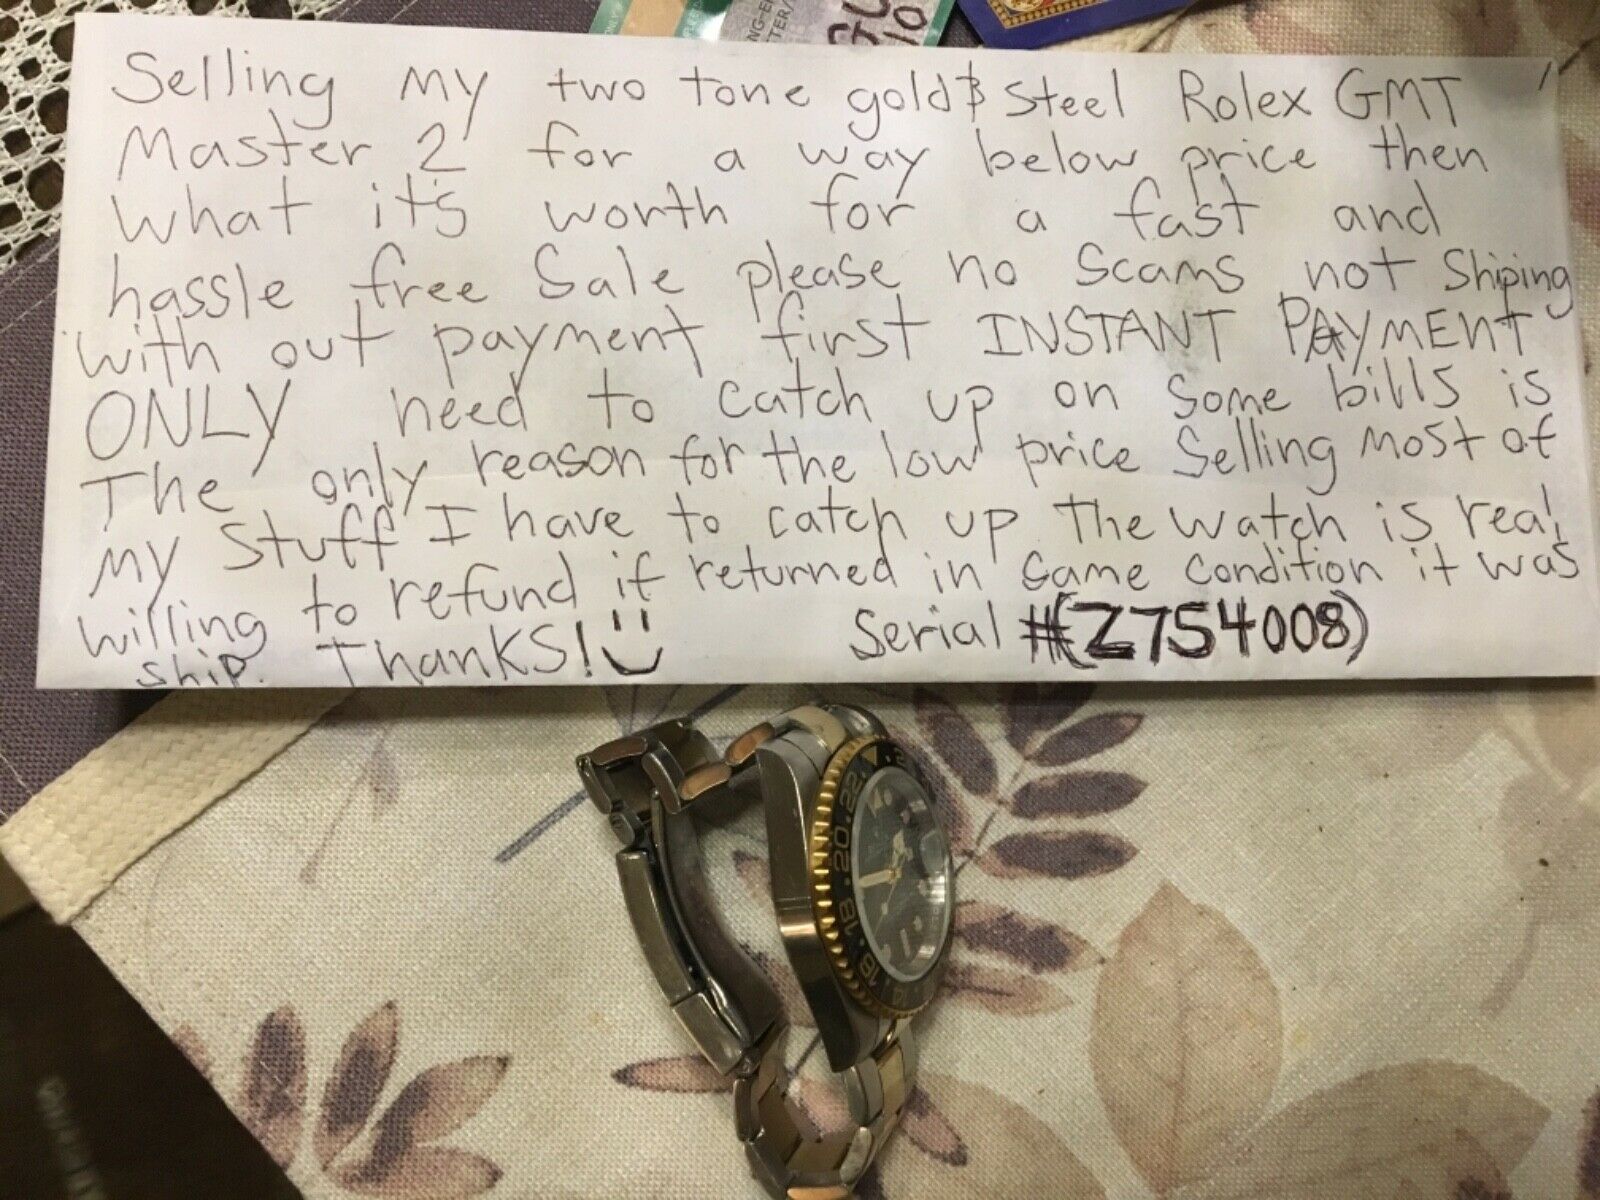 Selling my two tone gold & steel Rolex GMT
Master 2 for a way below price then
what it's worth for a fast and
hassle free Sale please no scams not Shiping
with out payment first INSTANT PAYMENT
ONLY need to catch up on some bills is
The only reason for the low price Selling most of
my stuff I have to catch up The watch is real
willing to refund if returned in same condition it was
ship. Thanks! Serial #(Z754008)
22
20
18
16
14